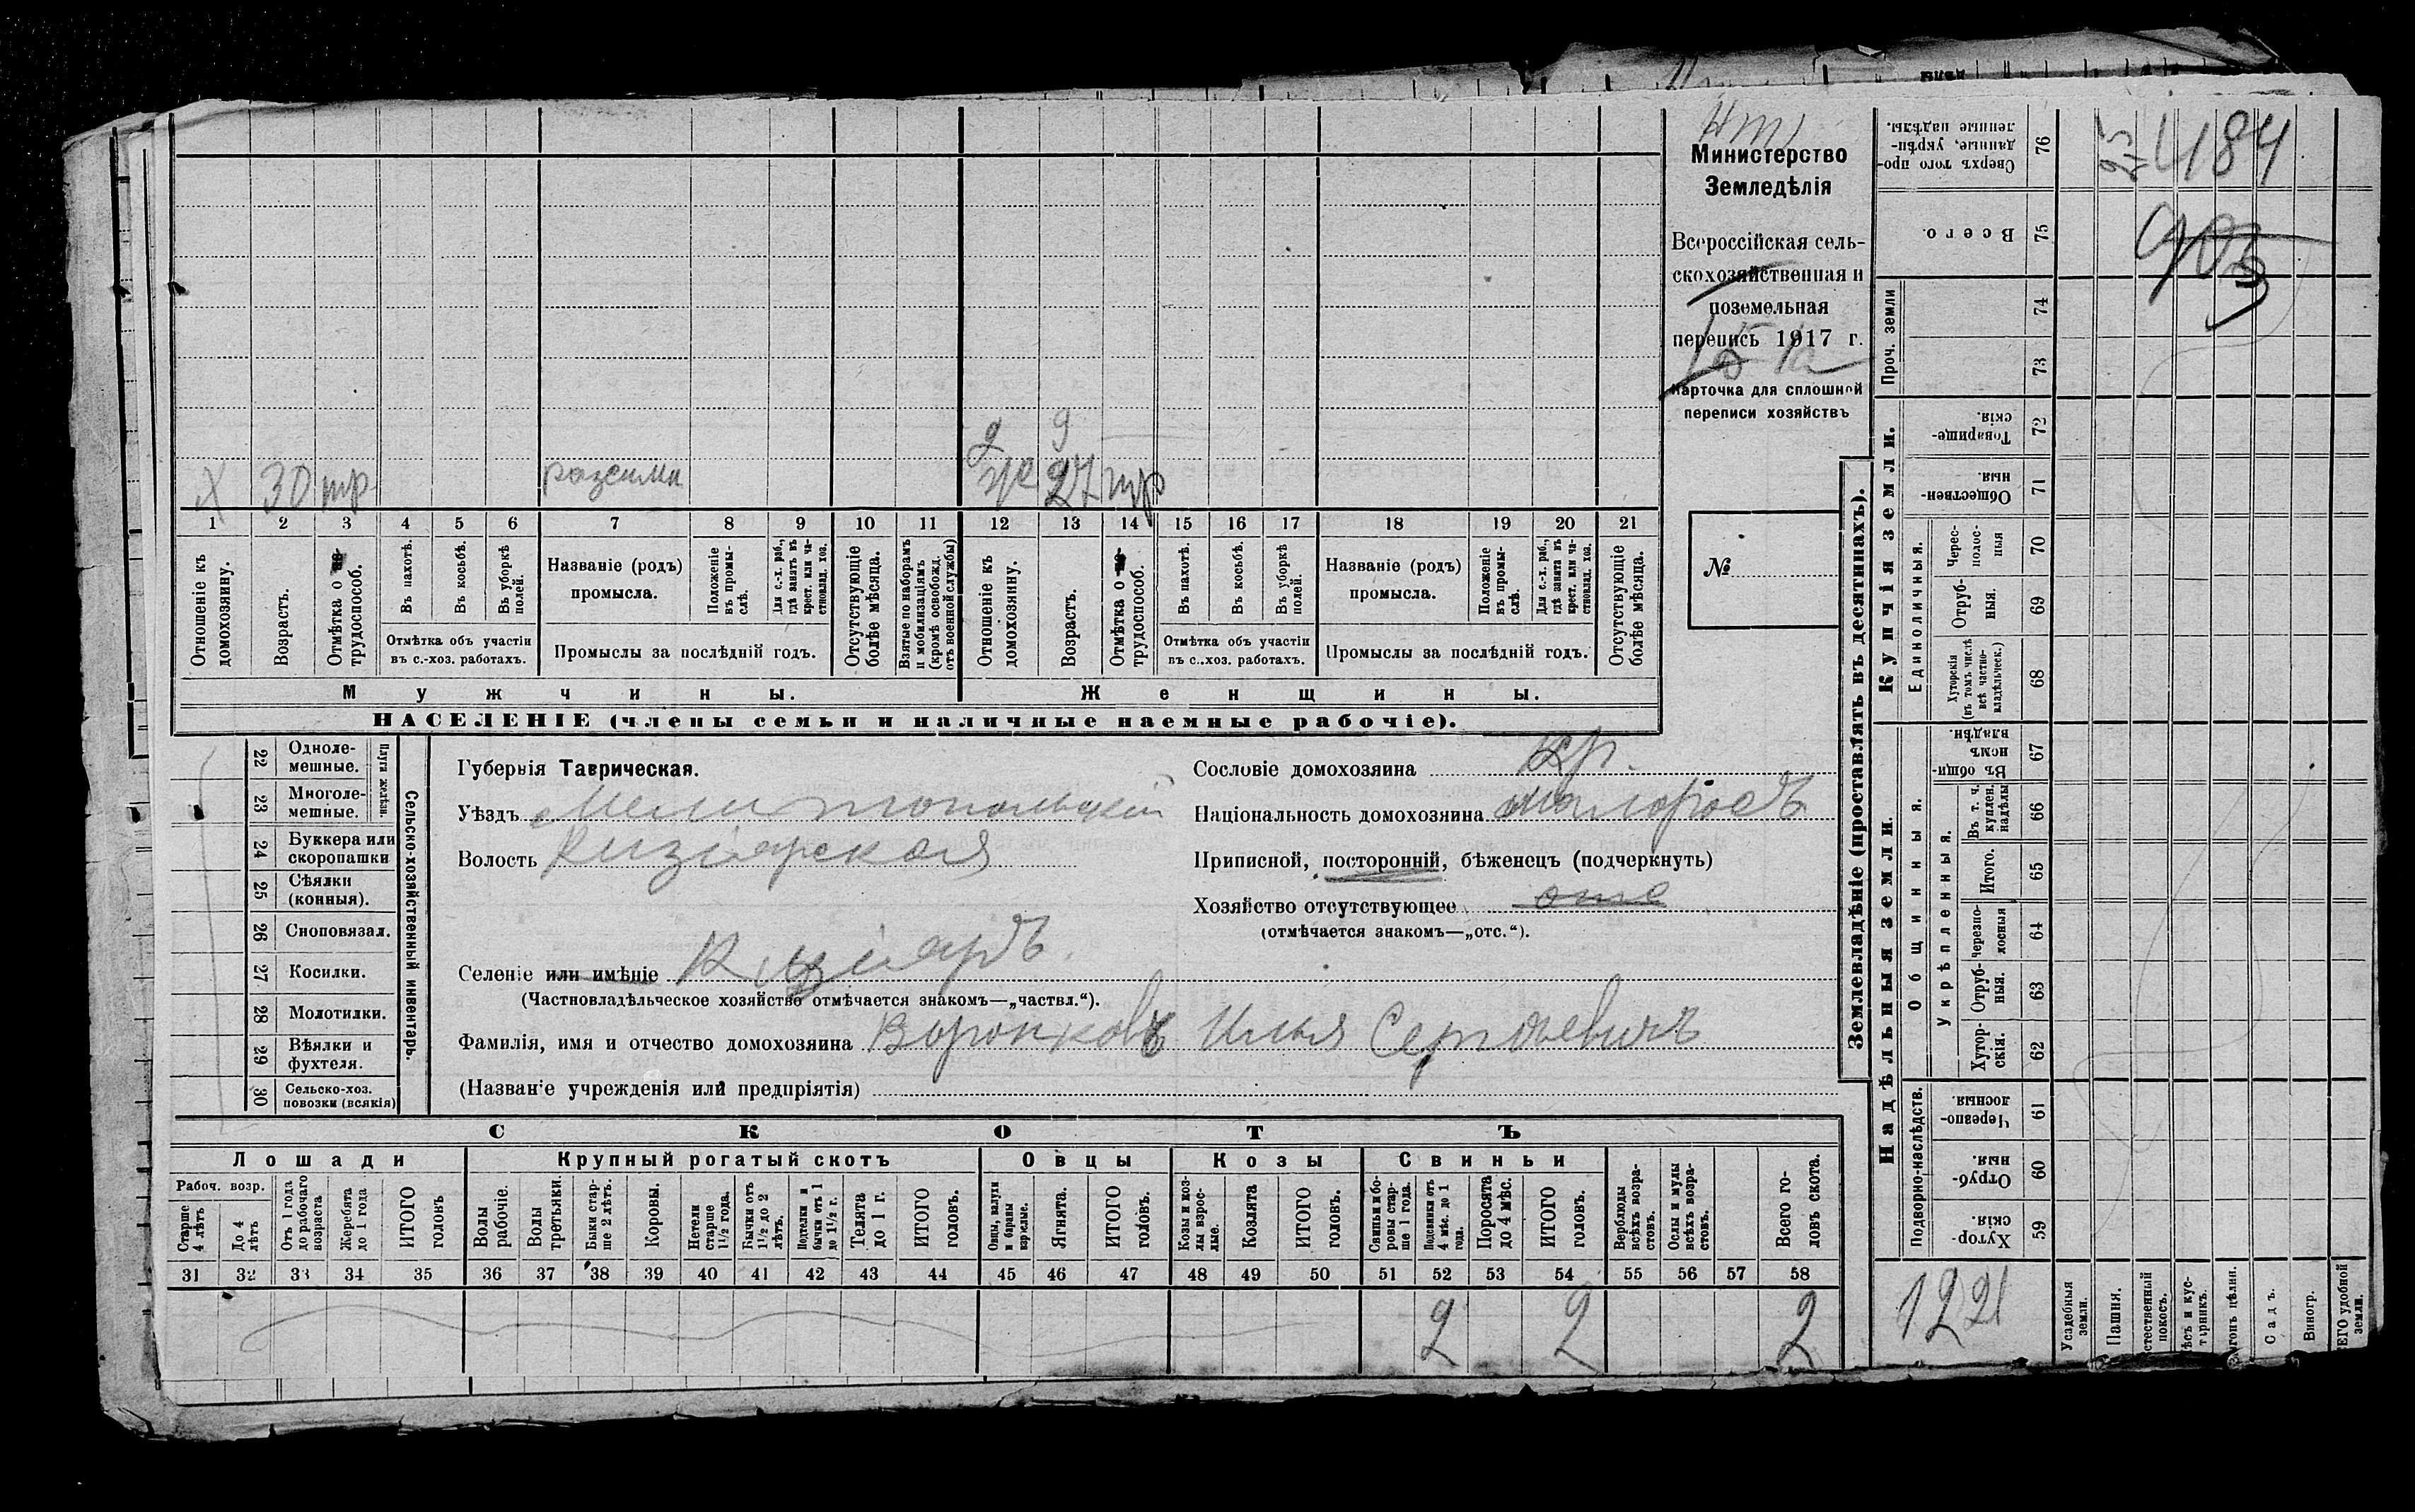 Министерство
Земледѣлія
Всероссійская сель-
скохозяйственная и
поземельная
перепись 1917 г.
Карточка для сплошной
переписи хозяйствъ
№
Х 30 тр
9 9
ж 27 тр
1 2 3 4 5 6 7 8 9 10 11 12 13 14 15 16 17 18 19 20 21
Отношеніе къ домохозяину.
Возрастъ.
Отмѣтка о трудоспособ.
Въ пахотѣ.
Въ косьбѣ.
Въ уборкѣ полей.
Отмѣтка объ участіи въ с.-хоз. работахъ.
Названіе (родъ) промысла.
Положеніе въ промы-слѣ.
Для с.-х. раб., гдѣ занятъ въ крест. или ча-стновлад. хоз.
Промыслы за послѣдній годъ.
Отсутствующіе болѣе мѣсяца.
Взятые по наборамъ и мобилизаціямъ (кромѣ освобожд. отъ военной службы)
Отношеніе къ домохозяину.
Возрастъ.
Отмѣтка о трудоспособ.
Въ пахотѣ.
Въ косьбѣ.
Въ уборкѣ полей.
Отмѣтка объ участіи въ с.-хоз. работахъ.
Названіе (родъ) промысла.
Положеніе въ промы-слѣ.
Для с.-х. раб., гдѣ занята въ крест. или ча-стновлад. хоз.
Промыслы за послѣдній годъ.
Отсутствующіе болѣе мѣсяца.
Мужчины. Женщины.
НАСЕЛЕНІЕ (члены семьи и наличные наемные рабочіе).
Сельско-хозяйственный инвентарь.
Плуги желѣзн.
22 Одноле-мешные.
23 Многоле-мешные.
24 Буккера или скоропашки
25 Сѣялки (конныя).
26 Сноповязал.
27 Косилки.
28 Молотилки.
29 Вѣялки и фухтеля.
30 Сельско-хоз. повозки (всякія)
Губернія Таврическая.
Уѣздъ Мелитопольскій
Волость Кизіярская
Селеніе или имѣніе Кизіяръ.
(Частновладѣльческое хозяйство отмѣчается знакомъ—„частвл.“).
Фамилія, имя и отчество домохозяина Воронковъ Илья Сергѣевичъ
(Названіе учрежденія или предпріятія)
Сословіе домохозяина кр.
Національность домохозяина малоросъ
Приписной, посторонній, бѣженецъ (подчеркнуть)
Хозяйство отсутствующее отс
(отмѣчается знакомъ—„отс.“).
СКОТЪ
Лошади Крупный рогатый скотъ Овцы Козы Свиньи
Рабоч. возр.
Старше 4 лѣтъ
До 4 лѣтъ
Отъ 1 года до рабочаго возраста
Жеребята до 1 года
ИТОГО головъ
Волы рабочіе.
Волы третьяки.
Быки стар-ше 2 лѣтъ.
Коровы.
Нетели старше 1½ года.
Бычки отъ 1½ до 2 лѣтъ.
Подтелки и бычки отъ 1 до 1½ г.
Телята до 1 г.
ИТОГО головъ.
Овцы, валухи и бараны взрослые.
Ягнята.
ИТОГО головъ.
Козы и коз-лы взрос-лые.
Козлята
ИТОГО головъ.
Свиньи и бо-ровы стар-ше 1 года.
Подсвинки отъ 4 мѣс. до 1 года.
Поросята до 4 мѣс.
ИТОГО головъ.
Верблюды всѣхъ возра-стовъ.
Ослы и мулы всѣхъ возра-стовъ.
Всего го-ловъ скота.
31 32 33 34 35 36 37 38 39 40 41 42 43 44 45 46 47 48 49 50 51 52 53 54 55 56 57 58
2 2 2
Землевладѣніе (проставлять въ десятинахъ).
Купчія земли.
Надѣльныя земли.
Проч. земли
Единоличныя.
Общинныя.
Укрѣпленныя.
Подворно-наслѣдств.
76 Сверхъ того про-данные, укрѣп-ленные надѣлы.
75 Всего.
74
73
72 Товарище-скія.
71 Обществен-ныя.
70 Черес-полос-ныя
69 Отруб-ныя.
68 Хуторскія (въ томъ числѣ всѣ частно-владѣльческ.)
67 Въ общи-номъ владѣн.
66 Въ т. ч. куплен. надѣлы
65 Итого.
64 Черезпо-лосныя
63 Отруб-ныя.
62 Хутор-скія.
61 Черезпо-лосныя.
60 Отруб-ныя.
59 Хутор-скія.
184
903
1221
Усадебныя земли.
Пашня.
Садъ.
Виногр.